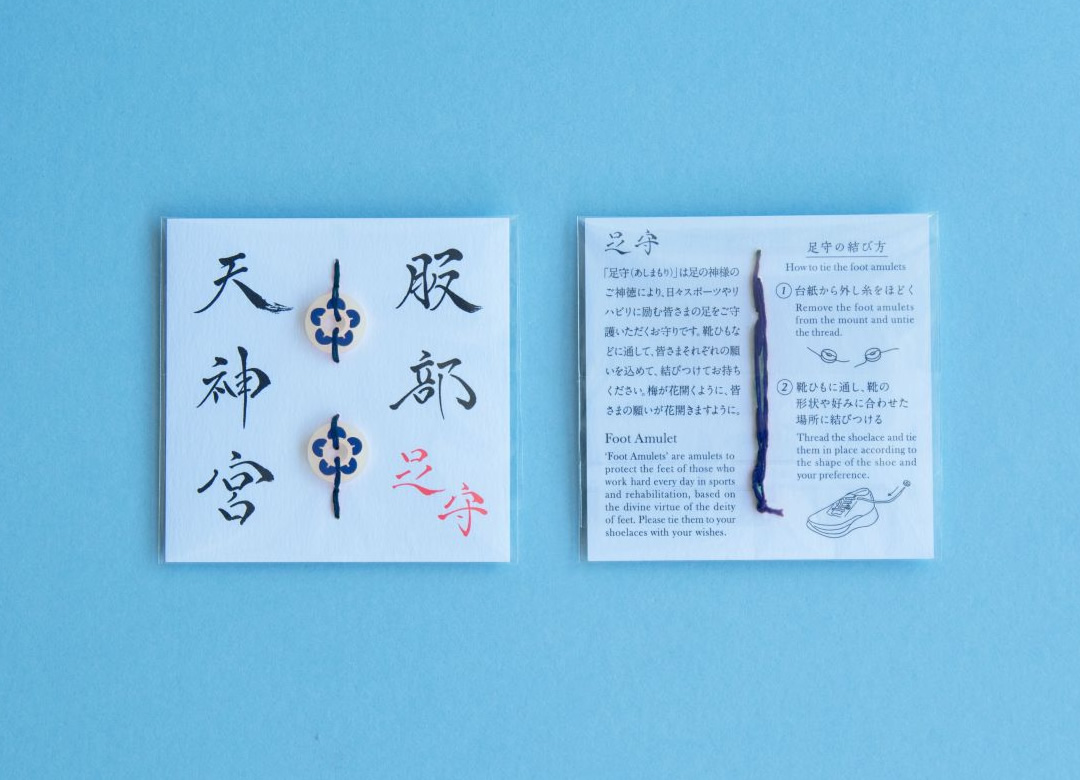 服部
天神宮
足守
足守
「足守(あしまもり)」は足の神様の
ご神徳により、日々スポーツやリ
ハビリに励む皆さまの足をご守
護いただくお守りです。靴ひもな
どに通して、皆さまそれぞれの願
いを込めて、結びつけてお持ち
ください。梅が花開くように、皆
さまの願いが花開きますように。
Foot Amulet
‘Foot Amulets’ are amulets to
protect the feet of those who
work hard every day in sports
and rehabilitation, based on
the divine virtue of the deity
of feet. Please tie them to your
shoelaces with your wishes.
足守の結び方
How to tie the foot amulets
① 台紙から外し糸をほどく
Remove the foot amulets
from the mount and untie
the thread.
② 靴ひもに通し、靴の
形状や好みに合わせた
場所に結びつける
Thread the shoelace and tie
them in place according to
the shape of the shoe and
your preference.